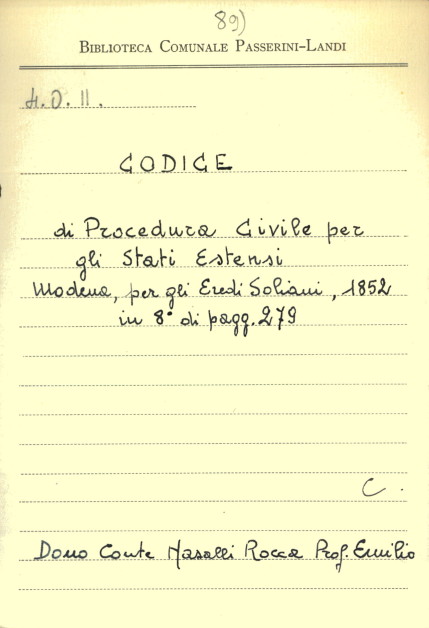 89)
BIBLIOTECA COMUNALE PASSERINI-LANDI
4.O.II.
CODICE
di Procedura Civile per
gli Stati Estensi
Modena, per gli Eredi Soliani, 1852
in 8° di pagg. 279
C.
Dono Conte Nasalli Rocca Prof. Emilio